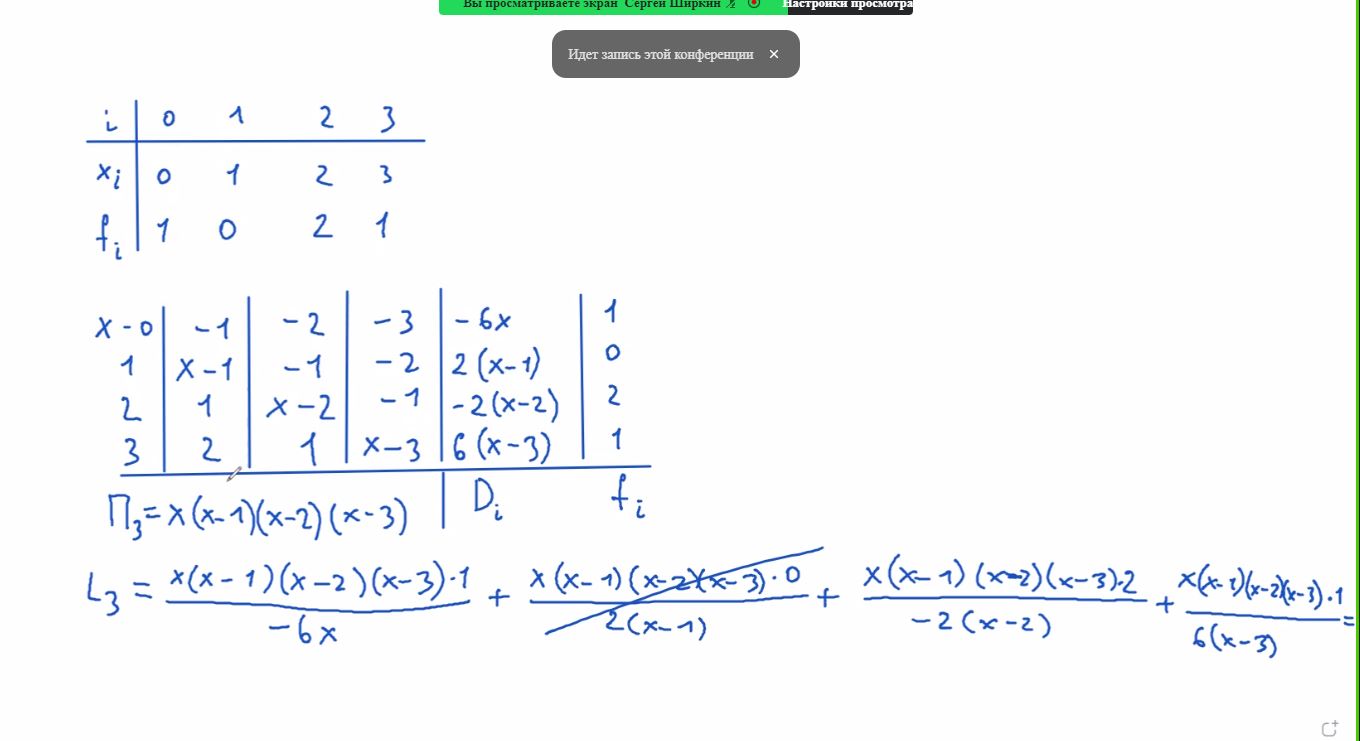 Вы просматриваете экран Сергей Ширкин Настройки просмотра
Идет запись этой конференции ×
i 0 1 2 3
xi 0 1 2 3
fi 1 0 2 1
x-0 | -1 | -2 | -3 | -6x | 1
1 | x-1 | -1 | -2 | 2(x-1) | 0
2 | 1 | x-2 | -1 | -2(x-2) | 2
3 | 2 | 1 | x-3 | 6(x-3) | 1
П3 = x(x-1)(x-2)(x-3) | Di fi
L3 = x(x-1)(x-2)(x-3)·1 / -6x + x(x-1)(x-2)(x-3)·0 / 2(x-1) + x(x-1)(x-2)(x-3)·2 / -2(x-2) + x(x-1)(x-2)(x-3)·1 / 6(x-3) =